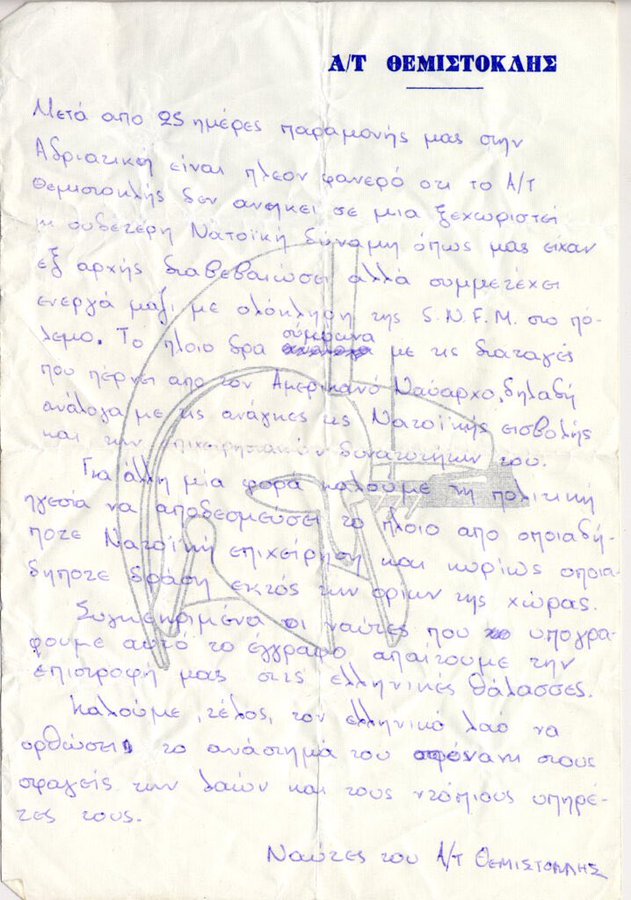 Α/Τ ΘΕΜΙΣΤΟΚΛΗΣ
Μετά απο 25 ημέρες παραμονής μας στην
Αδριατική είναι πλεον φανερό οτι το Α/Τ
Θεμιστοκλής δεν ανηκει σε μια ξεχωριστεί
κι ουδετερη Νατοϊκή δύναμη όπως μας είχαν
εξ αρχής διαβεβαιώσει αλλά συμμετέχει
ενεργά μαζι με ολόκληρη της S.N.F.M. στο πο-
λεμο. Το πλοιο δρα σύμφωνα με τις διαταγές
που πέρνει απο τον Αμερικανό Ναύαρχο, δηλαδή
ανάλογα με τις ανάγκες της Νατοϊκής εισβολής
και των επιχειρησιακών δυνατοτήτων του.
Για άλλη μία φορά καλούμε τη πολιτική
ηγεσία να αποδεσμεύσει το πλοιο απο οποιαδή-
ποτε Νατοϊκή επιχείρηση και κυρίως οποια-
δηποτε δράση εκτός των οριων της χώρας.
Συγκεκριμένα οι ναύτες που υπογρα-
φουμε αυτό το έγγραφο απαιτουμε την
επιστροφή μας στις ελληνικές θάλασσες.
Καλούμε, τέλος, τον ελληνικό λαο να
ορθώσει το ανάστημά του απέναντι στους
σφαγείς των λαών και τους ντόπιους υπηρέ-
τες τους.
Ναύτες του Α/Τ ΘΕΜΙΣΤΟΚΛΗΣ